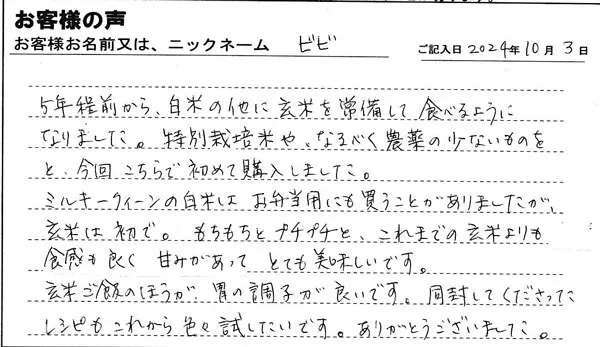 お客様の声
お客様お名前又は、ニックネーム ビビ ご記入日 2024年10月3日
5年程前から、白米の他に玄米を常備して食べるように
なりました。特別栽培米や、なるべく農薬の少ないものを
と、今回こちらで初めて購入しました。
ミルキークィーンの白米は お弁当用にも買うことがありましたが、
玄米は初で。もちもちとプチプチと、これまでの玄米よりも
食感も良く 甘みがあって とても美味しいです。
玄米ご飯のほうが、胃の調子が良いです。同封してくださった
レシピもこれから色々試したいです。ありがとうございました。